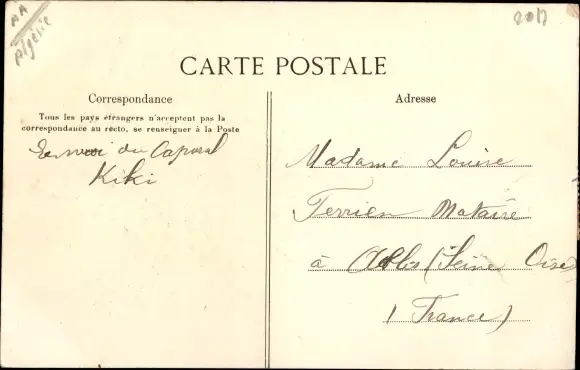 AA
Algérie
CARTE POSTALE
Correspondance
Tous les pays étrangers n'acceptent pas la
correspondance au recto, se renseigner à la Poste
du Caporal
Kiki
Adresse
Madame Louise
Terrien
à Ablis (Seine Oise)
(France)